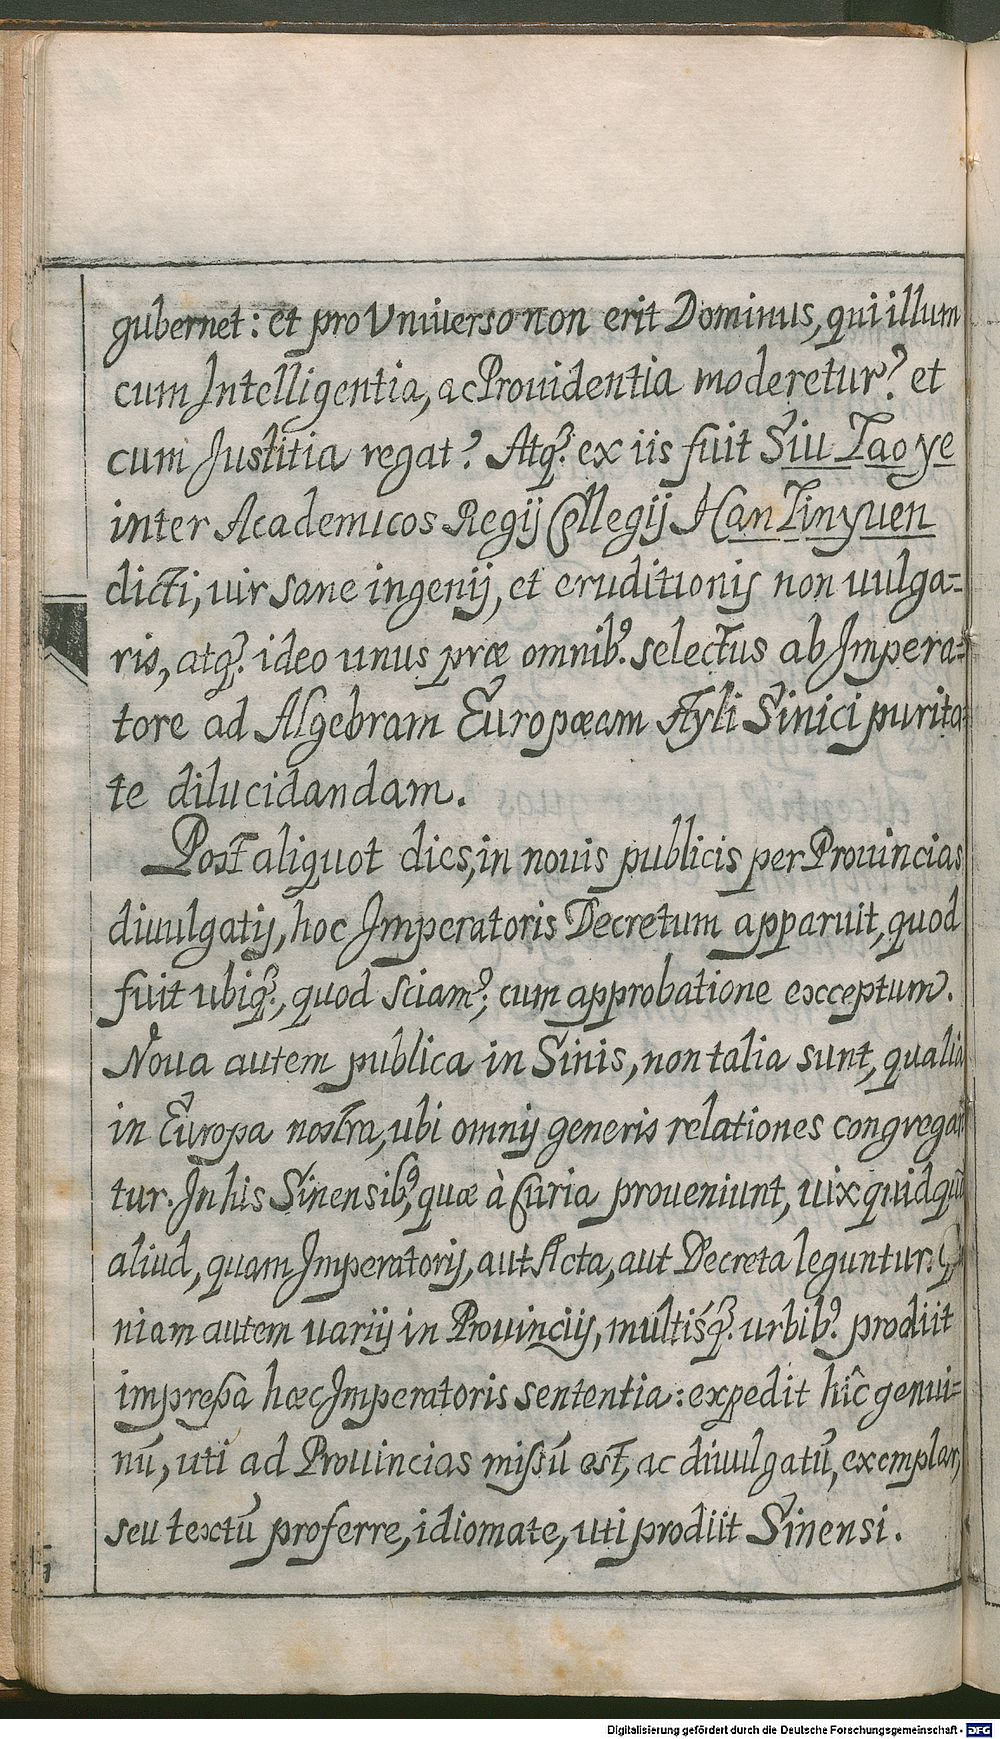 gubernet: et pro Vniuerso non erit Dominus, qui illum
cum Intelligentia, ac Prouidentia moderetur? et
cum Justitia regat? Atq̃. ex iis fuit Siu Tao ye
inter Academicos Regij Collegij Han Linyuen
dicti, uir sane ingenij, et eruditionis non uulga=
ris, atq̃. ideo unus præ omnib⁹. selectus ab Impera=
tore ad Algebram Europæam styli Sinici purita=
te dilucidandam.
Post aliquot dies, in nouis publicis per Prouincias
diuulgatis, hoc Imperatoris Decretum apparuit, quod
fuit ubiq̃., quod sciam⁹; cum approbatione exceptum.
Noua autem publica in Sinis, non talia sunt, qualia
in Europa nostra, ubi omnis generis relationes congregan
tur. In his Sinensib⁹, quæ à Curia proueniunt, uix quidquā
aliud, quam Imperatoris, aut Acta, aut Decreta leguntur.
niam autem uariis in Prouinciis, multisq̃. urbib⁹. prodiit
impreßa hæc Imperatoris sententia: expedit hîc genui=
nū, uti ad Prouincias mißū est, ac diuulgatū, exemplar,
seu textū proferre, idiomate, uti prodiit Sinensi.
Digitalisierung gefördert durch die Deutsche Forschungsgemeinschaft - DFG